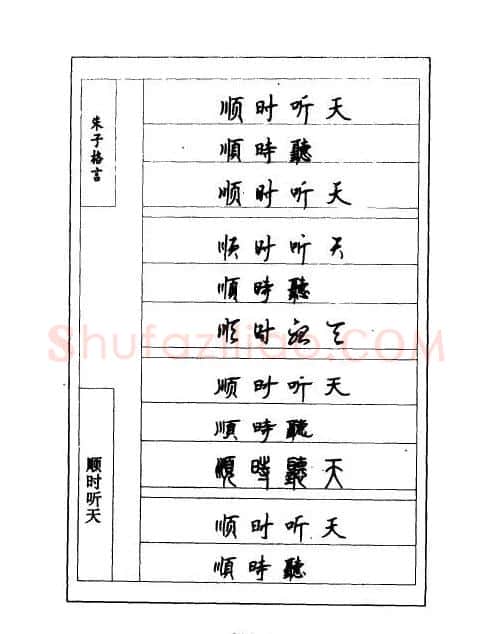 朱子格言
顺时听天
顺时听天
順時聽
顺时听天
顺时听天
順時聽
顺时聽天
顺时听天
順時聽
順時聽天
顺时听天
順時聽
Shufaziliao.COM